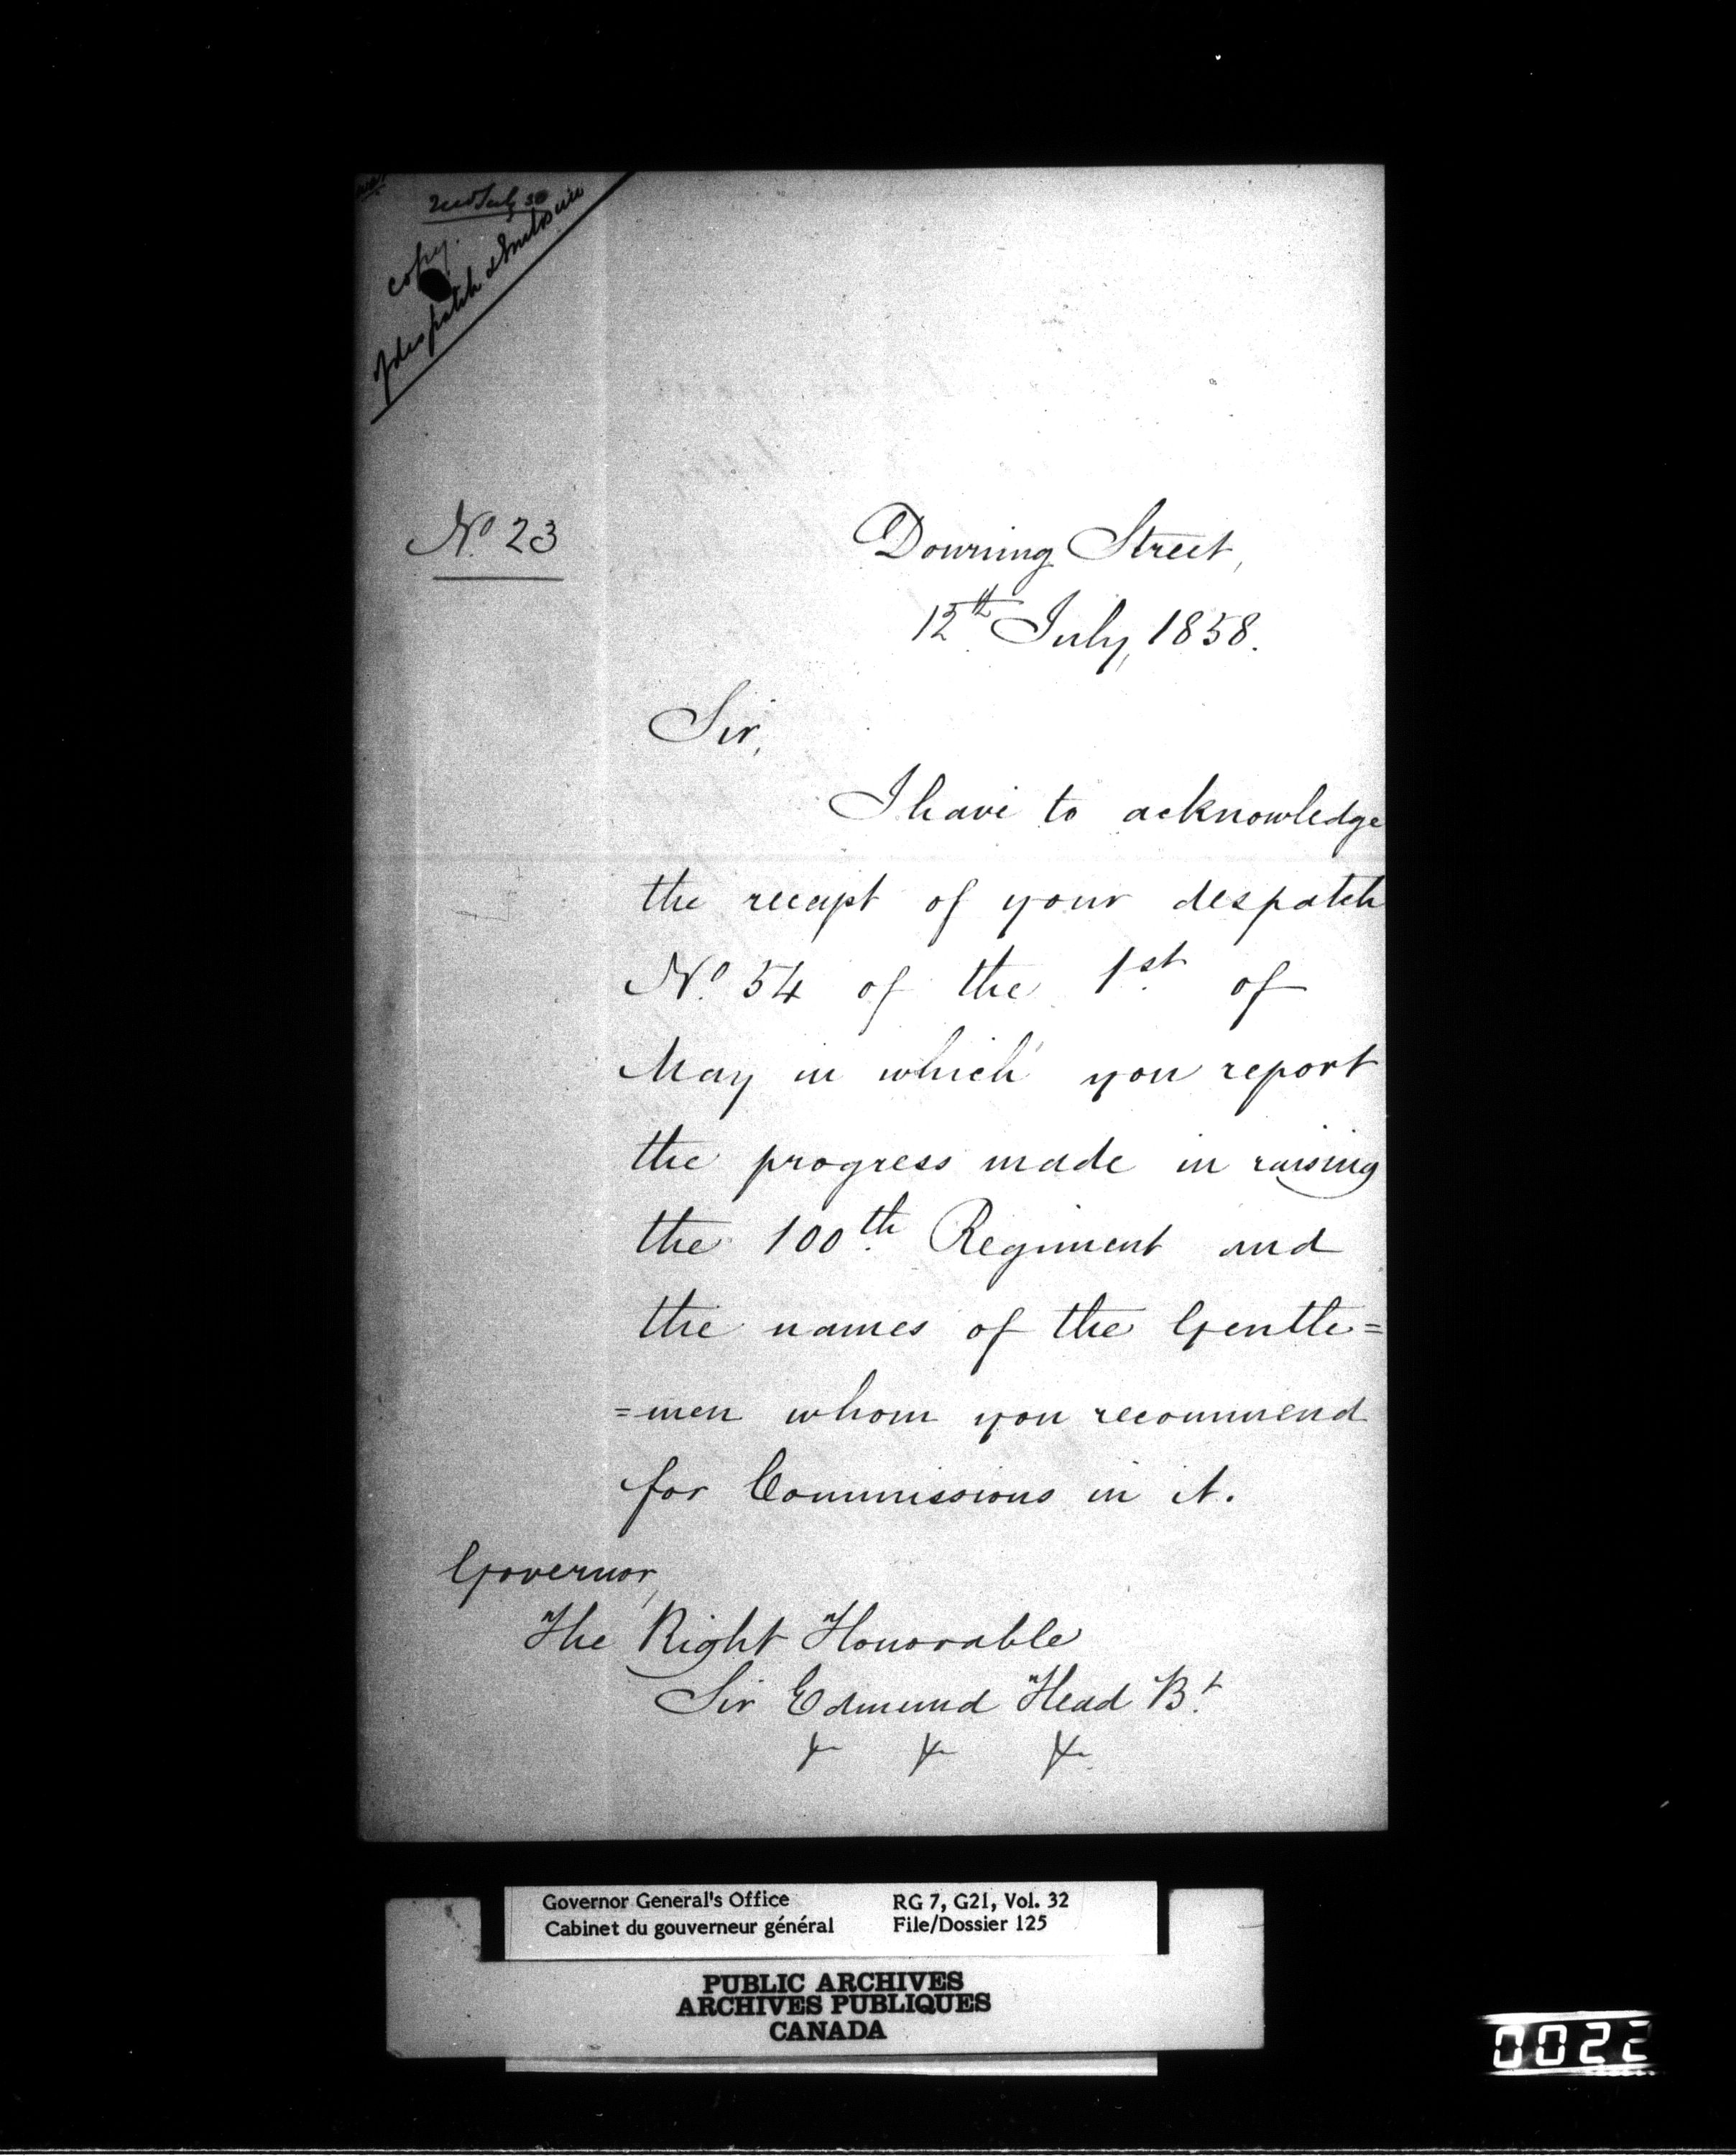 copy
of despatch & Enclosure
No 23
Downing Street,
12th July, 1858.
Sir,
I have to acknowledge
the receipt of your despatch
No. 54 of the 1st of
May in which you report
the progress made in raising
the 100th Regiment and
the names of the Gentle=
=men whom you recommend
for Commissions in it.
Governor,
The Right Honorable
Sir Edmund Head Bt.
Governor General's Office
Cabinet du gouverneur général
RG 7, G21, Vol. 32
File/Dossier 125
PUBLIC ARCHIVES
ARCHIVES PUBLIQUES
CANADA
0022